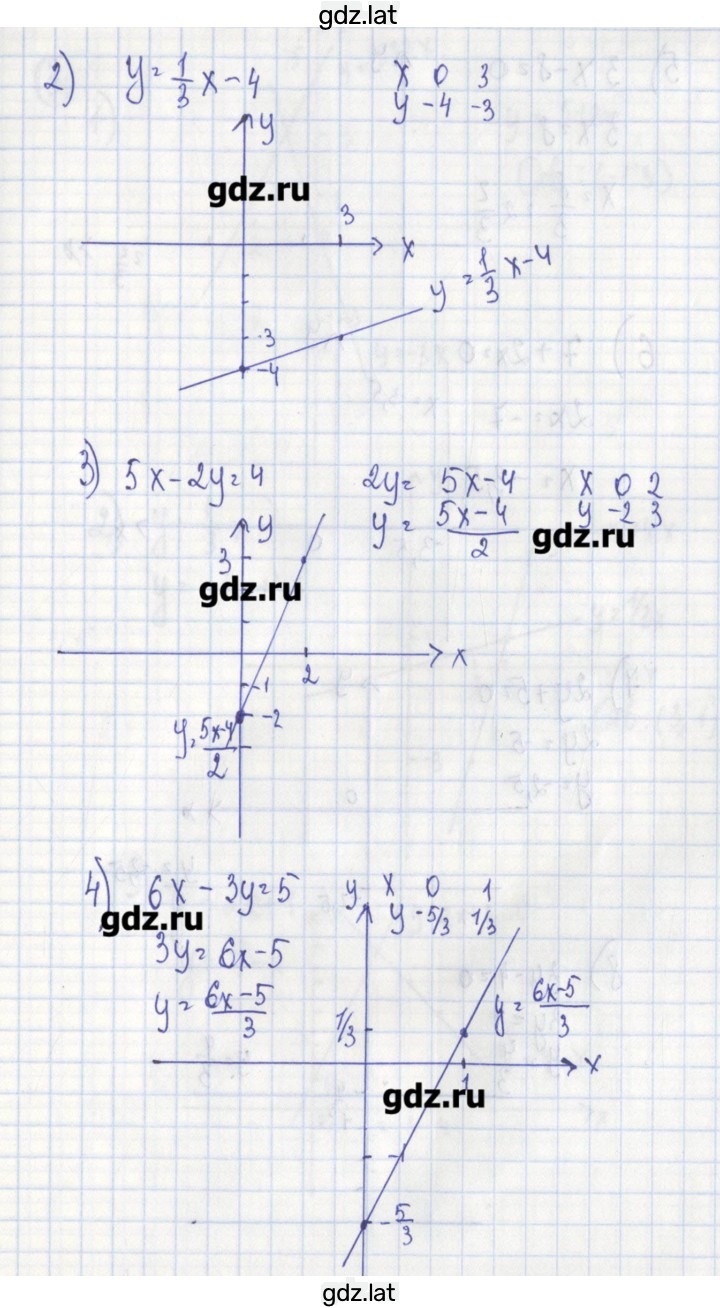 gdz.lat
2) y = 1/3 x - 4
x 0 3
y -4 -3
y
gdz.ru
3
x
y = 1/3 x - 4
·3
-4
3) 5x - 2y = 4
2y = 5x - 4
x 0 2
y = (5x - 4)/2
y -2 3
gdz.ru
y
3
gdz.ru
x
2
-1
-2
y = (5x-4)/2
4) 6x - 3y = 5
y
x 0 1
y -5/3 1/3
gdz.ru
3y = 6x - 5
y = (6x - 5)/3
y = (6x-5)/3
1/3
x
1
gdz.ru
-1
-5/3
gdz.lat